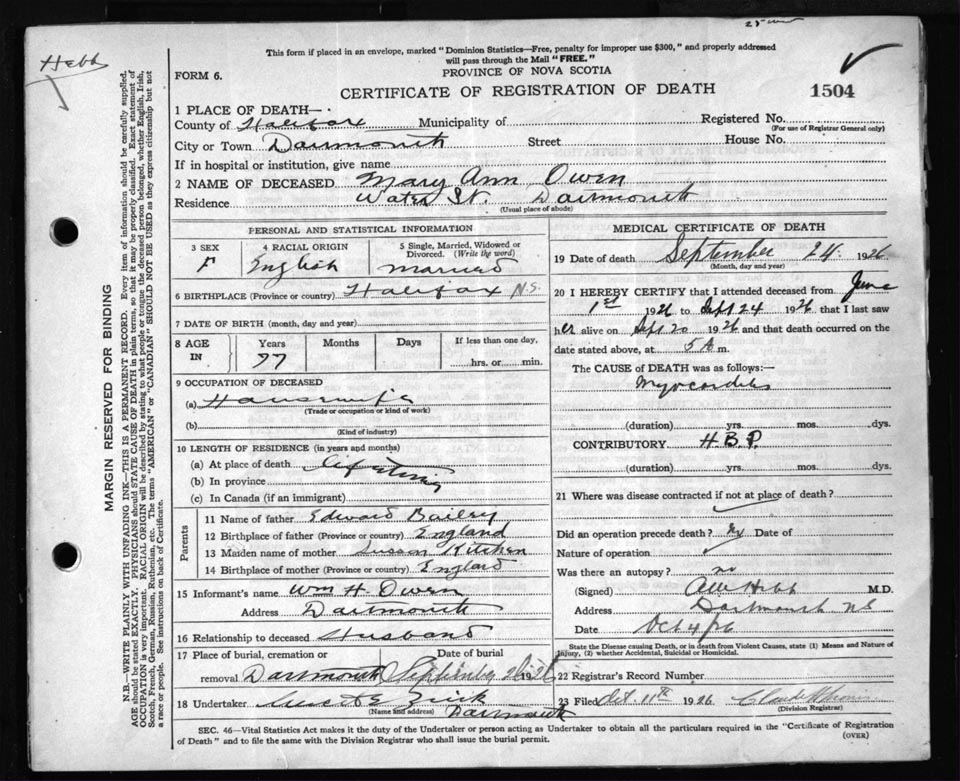 Hebb
This form if placed in an envelope, marked "Dominion Statistics—Free, penalty for improper use $300," and properly addressed
will pass through the Mail "FREE."
FORM 6.
PROVINCE OF NOVA SCOTIA
CERTIFICATE OF REGISTRATION OF DEATH
1504
1 PLACE OF DEATH—
County of Halifax Municipality of
Registered No.
(For use of Registrar General only)
City or Town Dartmouth Street House No.
If in hospital or institution, give name
2 NAME OF DECEASED Mary Ann Owen
Residence Water St. Dartmouth
(Usual place of abode)
PERSONAL AND STATISTICAL INFORMATION
3 SEX F
4 RACIAL ORIGIN English
5 Single, Married, Widowed or
Divorced. (Write the word)
Married
6 BIRTHPLACE (Province or country) Halifax N.S.
7 DATE OF BIRTH (month, day and year)
8 AGE IN
Years Months Days If less than one day,
77 hrs. or min.
9 OCCUPATION OF DECEASED
(a) Housewife
(Trade or occupation or kind of work)
(b)
(Kind of industry)
10 LENGTH OF RESIDENCE (in years and months)
(a) At place of death lifetime
(b) In province
(c) In Canada (if an immigrant)
Parents
11 Name of father Edward Bailey
12 Birthplace of father (Province or country) England
13 Maiden name of mother Susan Kitchen
14 Birthplace of mother (Province or country) England
15 Informant's name Wm H. Owen
Address Dartmouth
16 Relationship to deceased Husband
17 Place of burial, cremation or Date of burial
removal Dartmouth September 26 1926
18 Undertaker Zink
(Name and address) Dartmouth
MEDICAL CERTIFICATE OF DEATH
19 Date of death September 24 1926
(Month, day and year)
20 I HEREBY CERTIFY that I attended deceased from June
1st 1926 to Sept 24 1926 that I last saw
her alive on Sept 20 1926 and that death occurred on
date stated above, at 5 A m.
The CAUSE of DEATH was as follows:—
Myocarditis
(duration) yrs. mos. dys.
CONTRIBUTORY H.B.P.
(duration) yrs. mos. dys.
21 Where was disease contracted if not at place of death?
Did an operation precede death? No Date of
Nature of operation
Was there an autopsy? no
(Signed) Hebb M.D.
Address Dartmouth N.S.
Date Oct 4/26
State the Disease causing Death, or in death from Violent Causes, state (1) Means and Nature of
Injury, (2) whether Accidental, Suicidal or Homicidal.
22 Registrar's Record Number
23 Filed Oct. 11th 1926
(Division Registrar)
SEC. 46—Vital Statistics Act makes it the duty of the Undertaker or person acting as Undertaker to obtain all the particulars required in the "Certificate of Registration
of Death" and to file the same with the Division Registrar who shall issue the burial permit.
(OVER)
MARGIN RESERVED FOR BINDING
N.B.—WRITE PLAINLY WITH UNFADING INK—THIS IS A PERMANENT RECORD. Every item of information should be carefully supplied.
AGE should be stated EXACTLY. PHYSICIANS should STATE CAUSE OF DEATH in plain terms, so that it may be properly classified. Exact statement of
OCCUPATION is very important. RACIAL ORIGIN will be described by stating to what people or tongue the deceased person belonged, whether English, Irish,
Scotch, French, German, Russian, Ruthenian, etc. The terms "AMERICAN" or "CANADIAN" SHOULD NOT BE USED as they express citizenship but not
a race or people. See instructions on back of Certificate.